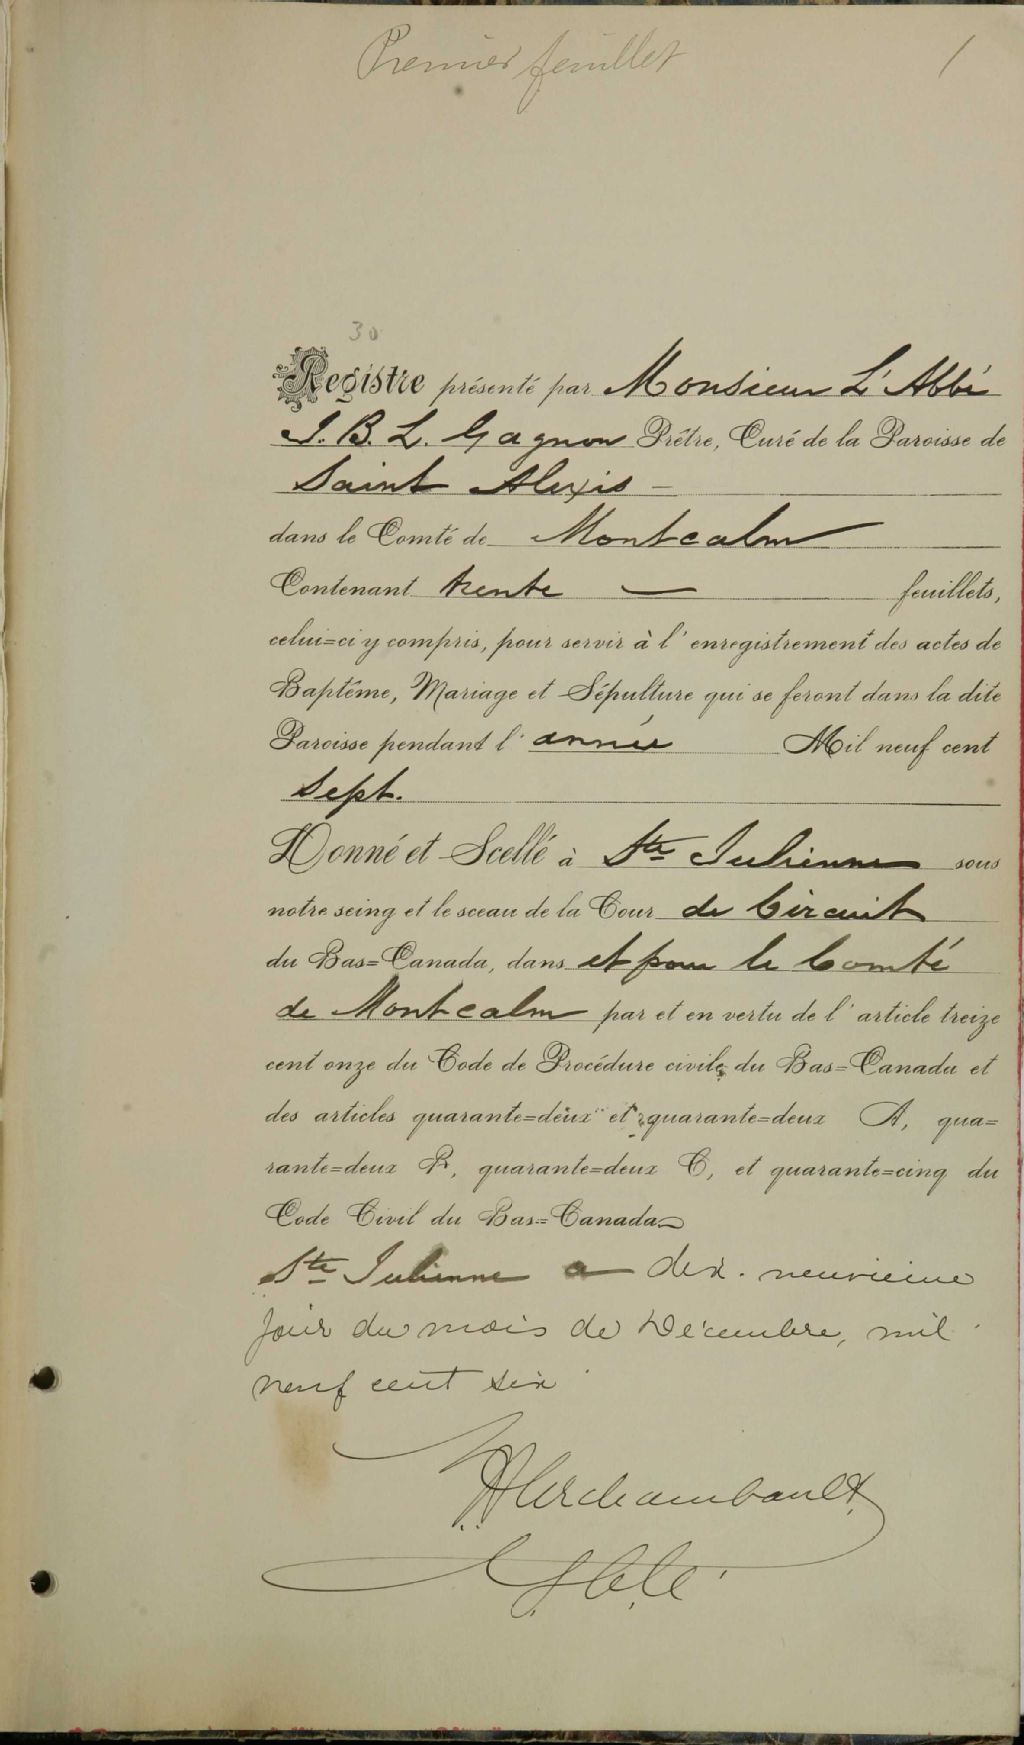 Premier feuillet 1
30
Registre présenté par Monsieur L'Abbé
J. B. L. Gagnon Prêtre, Curé de la Paroisse de
Saint Alexis —
dans le Comté de Montcalm
Contenant trente — feuillets,
celui=ci y compris, pour servir à l'enregistrement des actes de
Baptême, Mariage et Sépulture qui se feront dans la dite
Paroisse pendant l'année Mil neuf cent
Sept.
Donné et Scellé à Ste Julienne sous
notre seing et le sceau de la Cour de Circuit
du Bas=Canada, dans et pour le Comté
de Montcalm par et en vertu de l'article treize
cent onze du Code de Procédure civile du Bas=Canada et
des articles quarante=deux et quarante=deux A, qua=
rante=deux B, quarante=deux C, et quarante=cinq du
Code Civil du Bas=Canada
Ste Julienne a dix. neuvieme
jour du mois de Décembre, mil
neuf cent six
Archambault